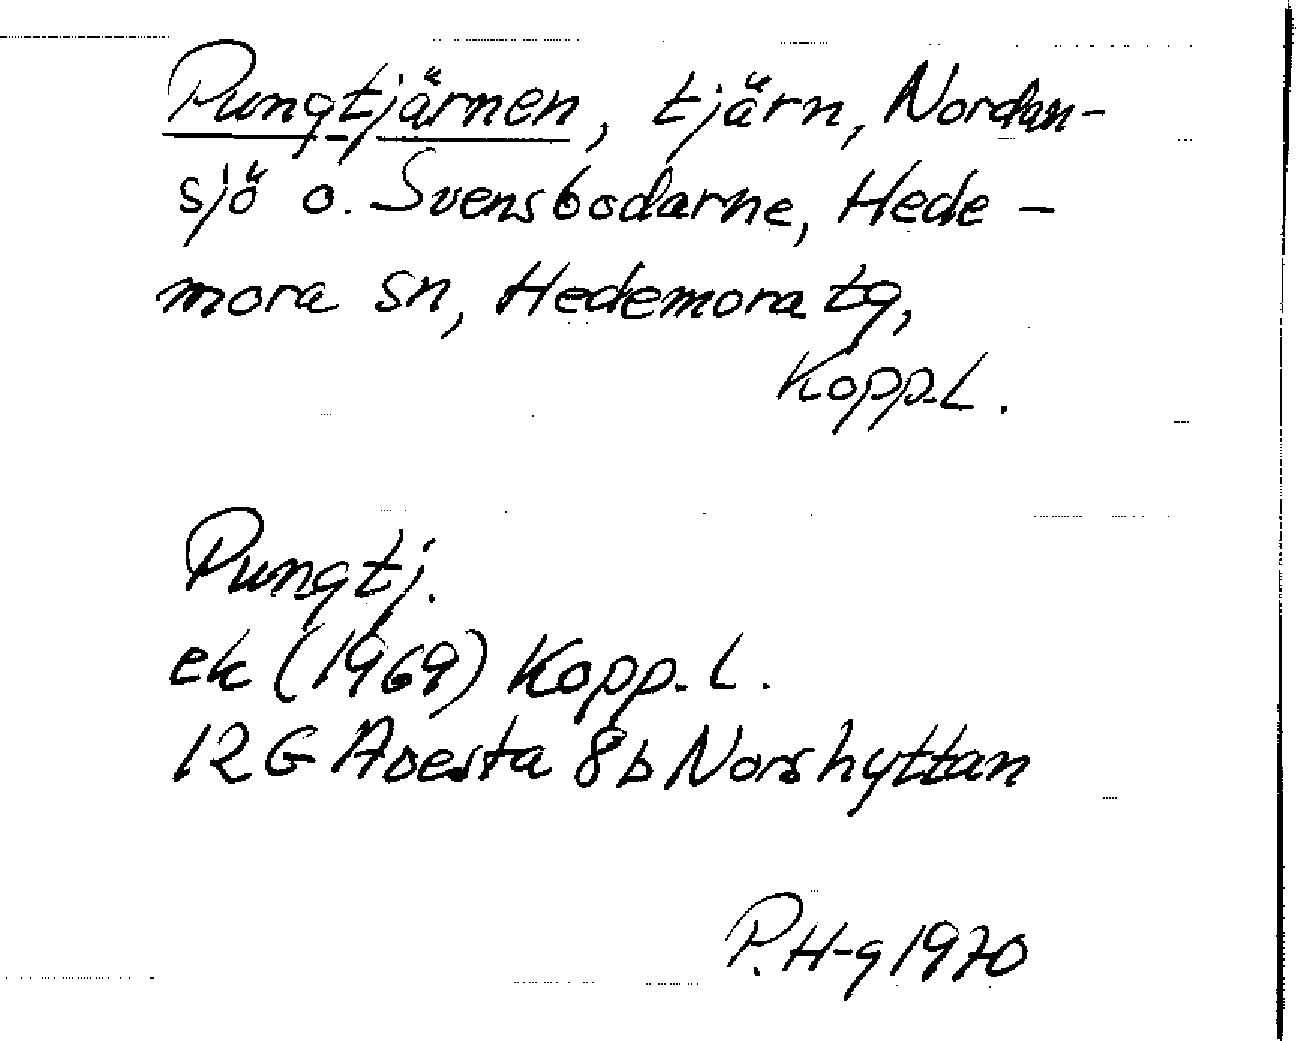 Pungtjärnen, tjärn, Nordan-
sjö o. Svensbodarne, Hede-
mora sn, Hedemora tg,
Kopp.L.
Pungtj.
ek (1969) Kopp. L.
12 G Avesta 8b Norshyttan
P. H-g 1970